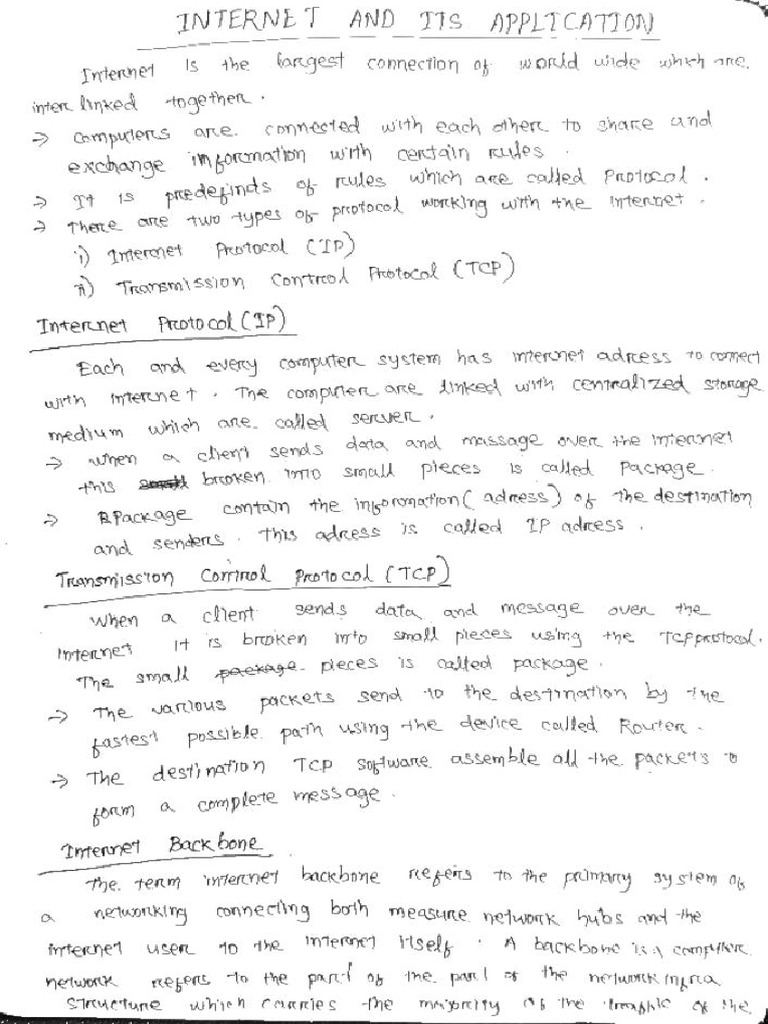 INTERNET AND ITS APPLICATION
Internet is the largest connection of world wide which are
inter linked together.
→ computers are connected with each other to share and
exchange information with certain rules.
→ It is predefinds of rules which are called Protocol.
→ There are two types of protocol working with the internet.
i) Internet Protocol (IP)
ii) Transmission Control Protocol (TCP)
Internet Protocol (IP)
Each and every computer system has internet adress to connect
with internet. The computer are linked with centralized storage
medium which are called server.
→ when a client sends data and massage over the internet
this broken into small pieces is called Package.
→ Package contain the information (adress) of the destination
and senders. This adress is called IP adress.
Transmission Control Protocol (TCP)
When a client sends data and message over the
internet it is broken into small pieces using the TCP protocol.
The small package pieces is called package.
→ The various packets send to the destination by the
fastest possible path using the device called Router.
→ The destination TCP software assemble all the packets to
form a complete message.
Internet Backbone
The term internet backbone refers to the primary system of
a networking connecting both measure network hubs and the
internet user to the internet itself. A backbone is a computer
network refers to the part of the part of the network infra
structure which carries the majority of the traffic of the